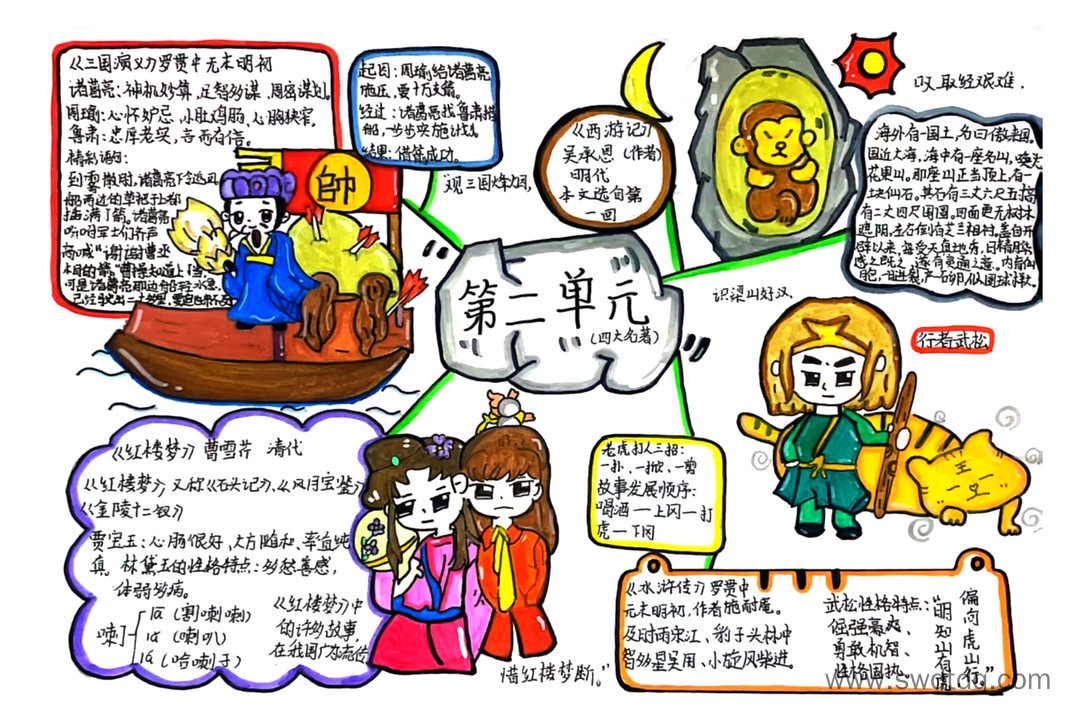 《三国演义》罗贯中 元末明初
诸葛亮:神机妙算,足智多谋,周密谋划。
周瑜:心怀妒忌,小肚鸡肠,心胸狭窄。
鲁肃:忠厚老实,言而有信。
精彩语句:
到雾散时,诸葛亮下令返回
船两边的草把子上都
插满了箭。诸葛亮
吩咐军士们齐声
高喊“谢谢曹丞
相的箭。”曹操知道上了当
可是诸葛亮那边船轻水急
已经驶出二十多里,要追也来不及
帥
起因:周瑜给诸葛亮
施压,要十万支箭。
经过:诸葛亮找鲁肃借
船,一步步实施计划。
结果:借箭成功。
观三国烽烟,
《西游记》
吴承恩(作者)
明代
本文选自第
一回
叹取经艰难.
海外有一国土,名曰傲来国。
国近大海,海中有一座名山,唤
花果山。那座山正当顶上,有一
块仙石。其石有三丈六尺五寸高
有二丈四尺围圆。四面更无树木
遮阴,左右倒有芝兰相衬。盖自开
辟以来,每受天真地秀,日精月华
感之既久,遂有灵通之意。内育仙
胞,一日迸裂,产一石卵,似圆球样大
第二单元
(四大名著)
识梁山好汉.
行者武松
王
老虎打人三招:
一扑、一掀、一剪
故事发展顺序:
喝酒一上冈一打
虎一下冈
《红楼梦》曹雪芹 清代
《红楼梦》又称《石头记》、《风月宝鉴》
《金陵十二钗》
贾宝玉:心肠很好、大方随和、率直纯
真。林黛玉的性格特点:多愁善感,
体弱多病。
喇
lá(割喇喇)
lǎ(喇叭)
lá(哈喇子)
《红楼梦》中
的许多故事,
在我国广为流传
惜红楼梦断。”
《水浒传》罗贯中
元末明初.作者施耐庵。
及时雨宋江、豹子头林冲
智多星吴用、小旋风柴进。
武松性格特点:
倔强豪爽、
勇敢机智、
性格固执。
“明知山有虎
偏向虎山行。”